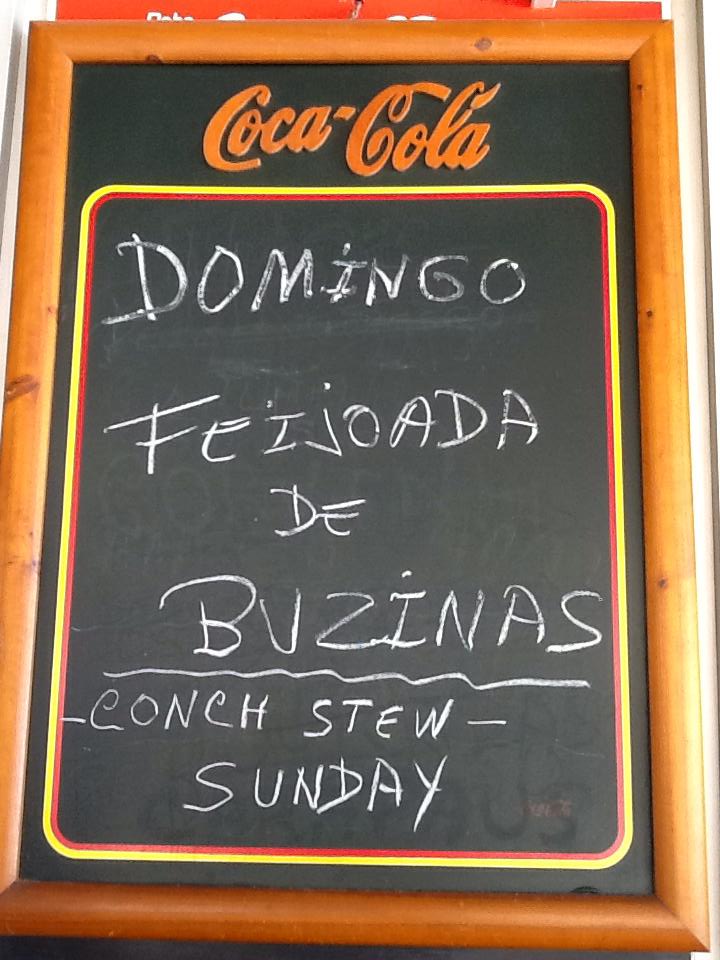 Coca-Cola
DOMINGO
FEIJOADA
DE
BUZINAS
-CONCH STEW-
SUNDAY